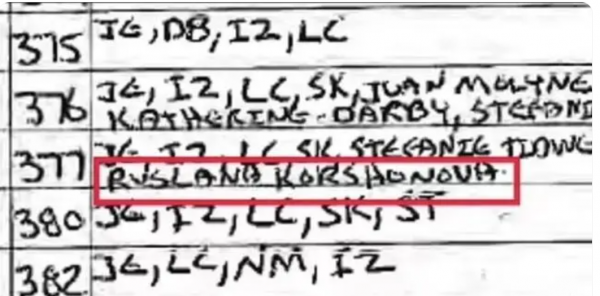 375 JE, DB, IZ, LC
376 JE, IZ, LC, SK, JUAN MOLYNE
KATHERINE DARBY, STEFANI
377 JE IZ LC SK STEFANIE
RUSLANA KORSHONOVA
380 JE, IZ, LC, SK, ST
382 JE, LC, NM, IZ